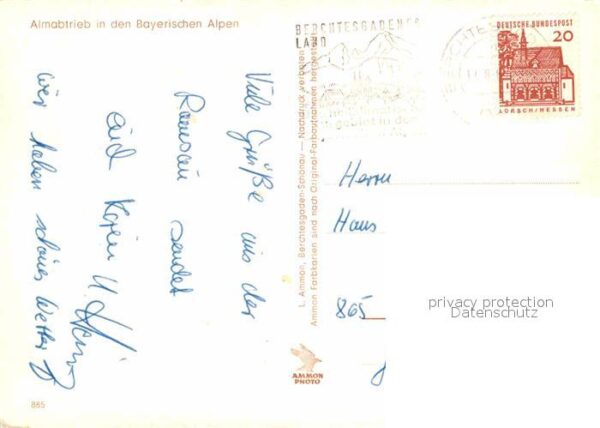 Almabtrieb in den Bayerischen Alpen
BERCHTESGADENER
LAND
DEUTSCHE BUNDESPOST
20
LORSCH/HESSEN
Viele Grüße aus der
Ramsau sendet
euch Karin u.
wir haben schönes Wetter
L. Ammon, Berchtesgaden-Schönau — Nachdruck verboten
Ammon Farbkarten sind nach Original-Farbaufnahmen hergestellt
Herrn
Hans
865
privacy protection
Datenschutz
AMMON
PHOTO
885